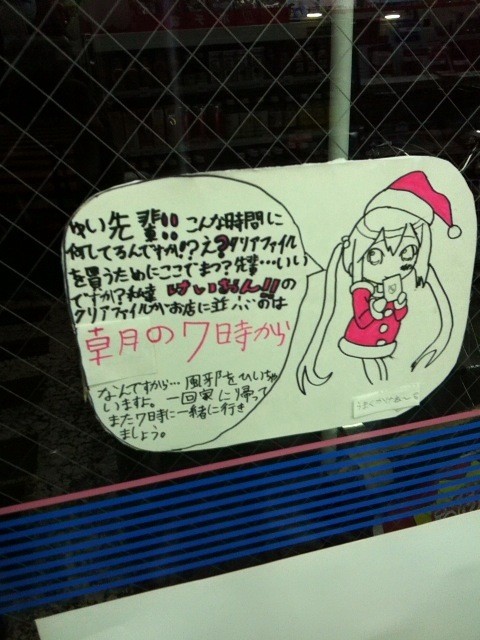 ゆい先輩!! こんな時間に
何してるんですか!? え? クリアファイル
を買うためにここでまつ? 先輩…いい
ですか? 私達 けいおん!! の
クリアファイルがお店に並ぶのは
朝の7時から
なんですから… 風邪をひいちゃ
いますよ。一回家に帰って
また7時に一緒に行き
ましょう。